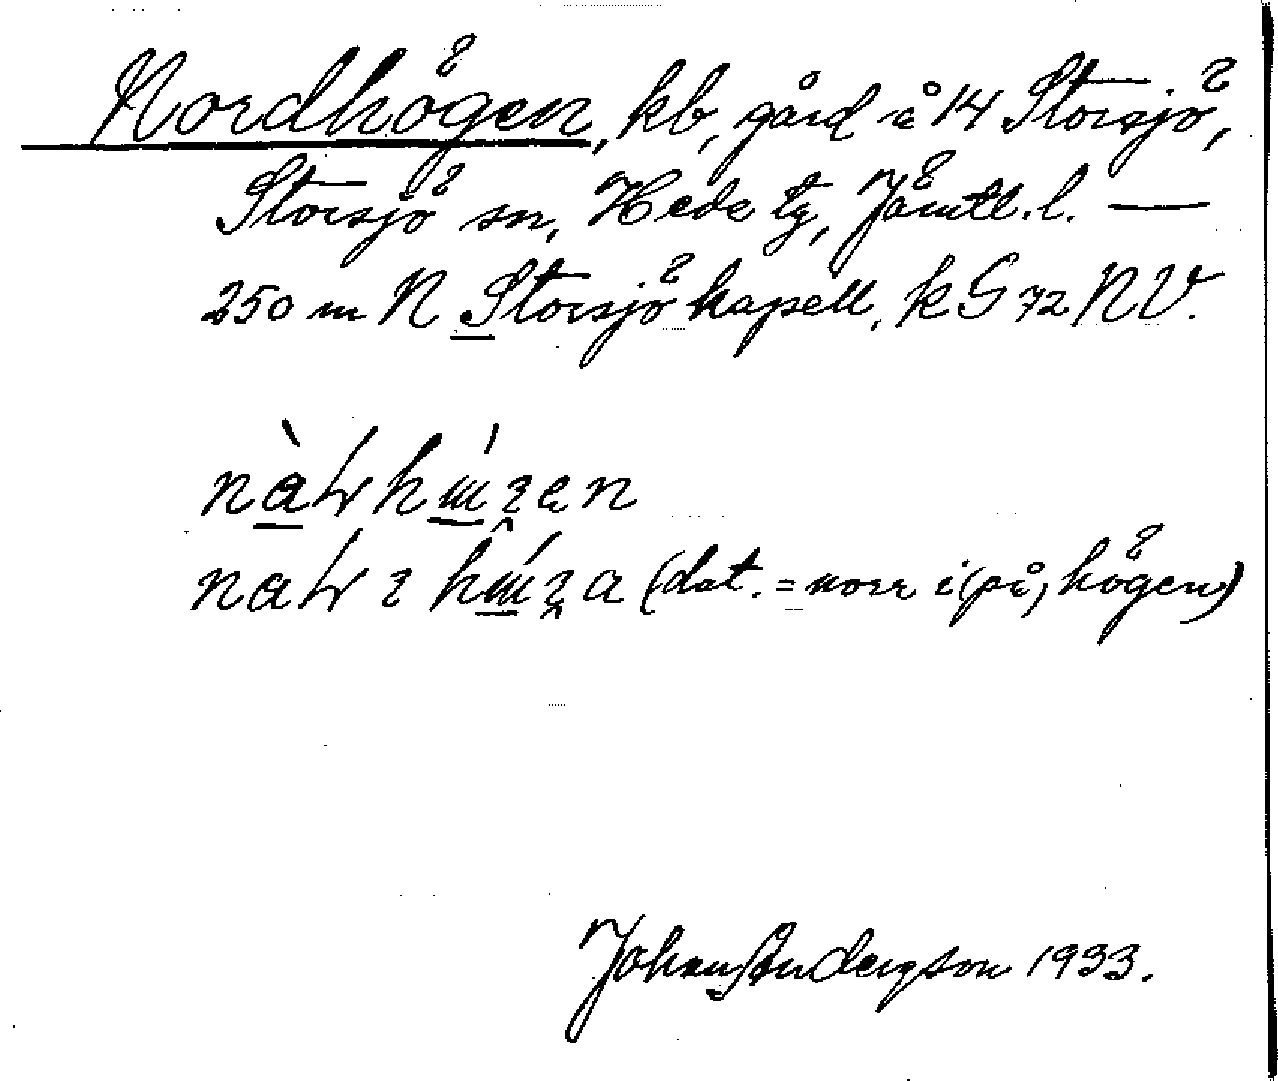 Nordhögen, kb, gård å 1⁴ Storsjö,
Storsjö sn, Hede tg, Jämtl. l. —
250 m N Storsjö kapell, kG 72 NV.
(dat. = norr i (på) högen)
Johan Anderson 1933.